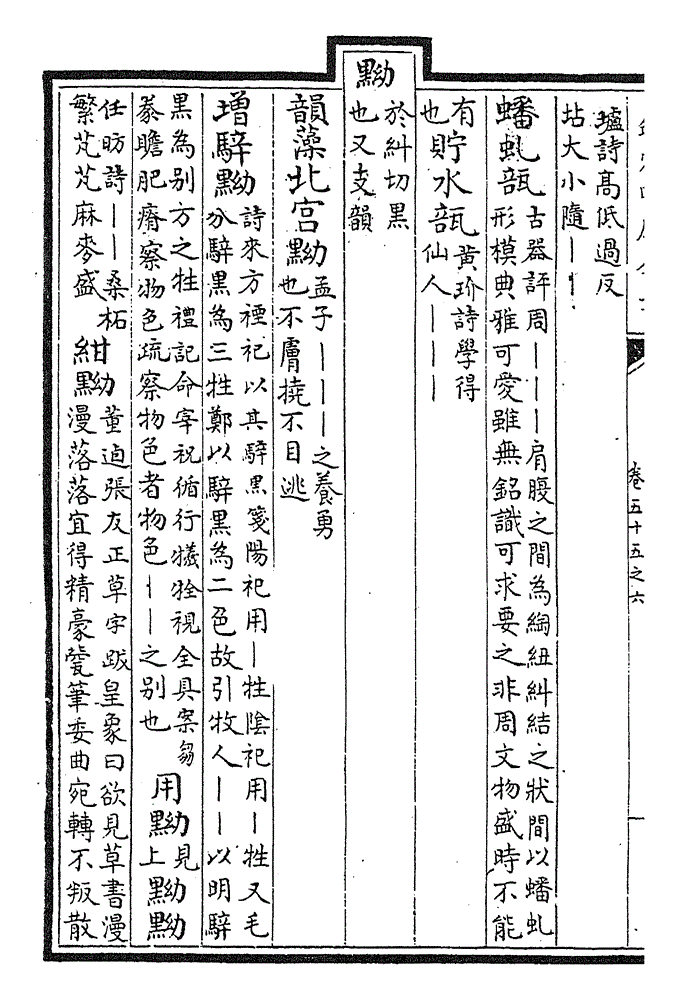 壚詩髙低過反
坫大小隨丨丨
蟠虬瓿古器評周丨丨丨肩腹之間為綯紐糾結之狀間以蟠虬
形模典雅可愛雖無銘識可求要之非周文物盛時不能
有
也貯水瓿黄玠詩學得
仙人丨丨丨
黝
於糾切黒
也又支韻
韻藻北宫黝孟子丨丨丨之養勇
也不膚撓不目逃
增騂黝詩來方禋祀以其騂黒箋陽祀用丨牲隂祀用丨牲又毛
分騂黒為三牲鄭以騂黒為二色故引牧人丨丨以明騂
黒為别方之牲禮記命宰祝循行犧牷視全具案芻
豢瞻肥瘠察物色疏察物色者物色丨丨之别也用黝見
上黝黝
任昉詩丨丨桑柘
繁芃芃麻麥盛紺黝董逌張友正草字跋皇象曰欲見草書漫
漫落落宜得精豪㼱筆委曲宛轉不叛散
卷五十五之六